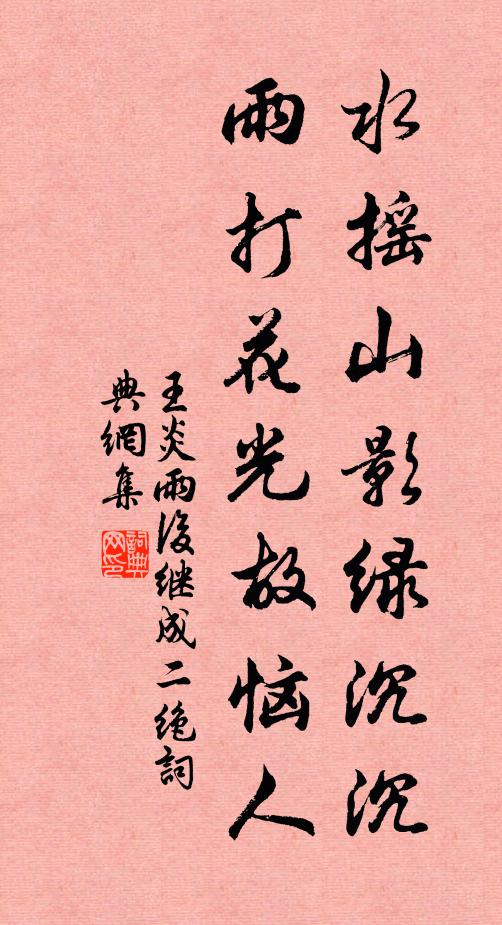 水摇山影绿沉沉
雨打花光故恼人
王炎雨後继成二绝詞
典網集
詞典网印